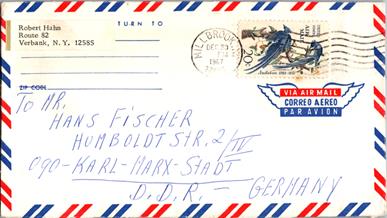 Robert Hahn
Route 82
Verbank, N. Y. 12585
TURN TO
ZIP CODE
MILLBROOK
DEC 23
PM
1967
20c
Audubon 1785-1851
VIA AIR MAIL
CORREO AEREO
PAR AVION
To MR.
HANS FISCHER
HUMBOLDTSTR. 2/IV
090-KARL-MARX-STADT
D.D.R. - GERMANY